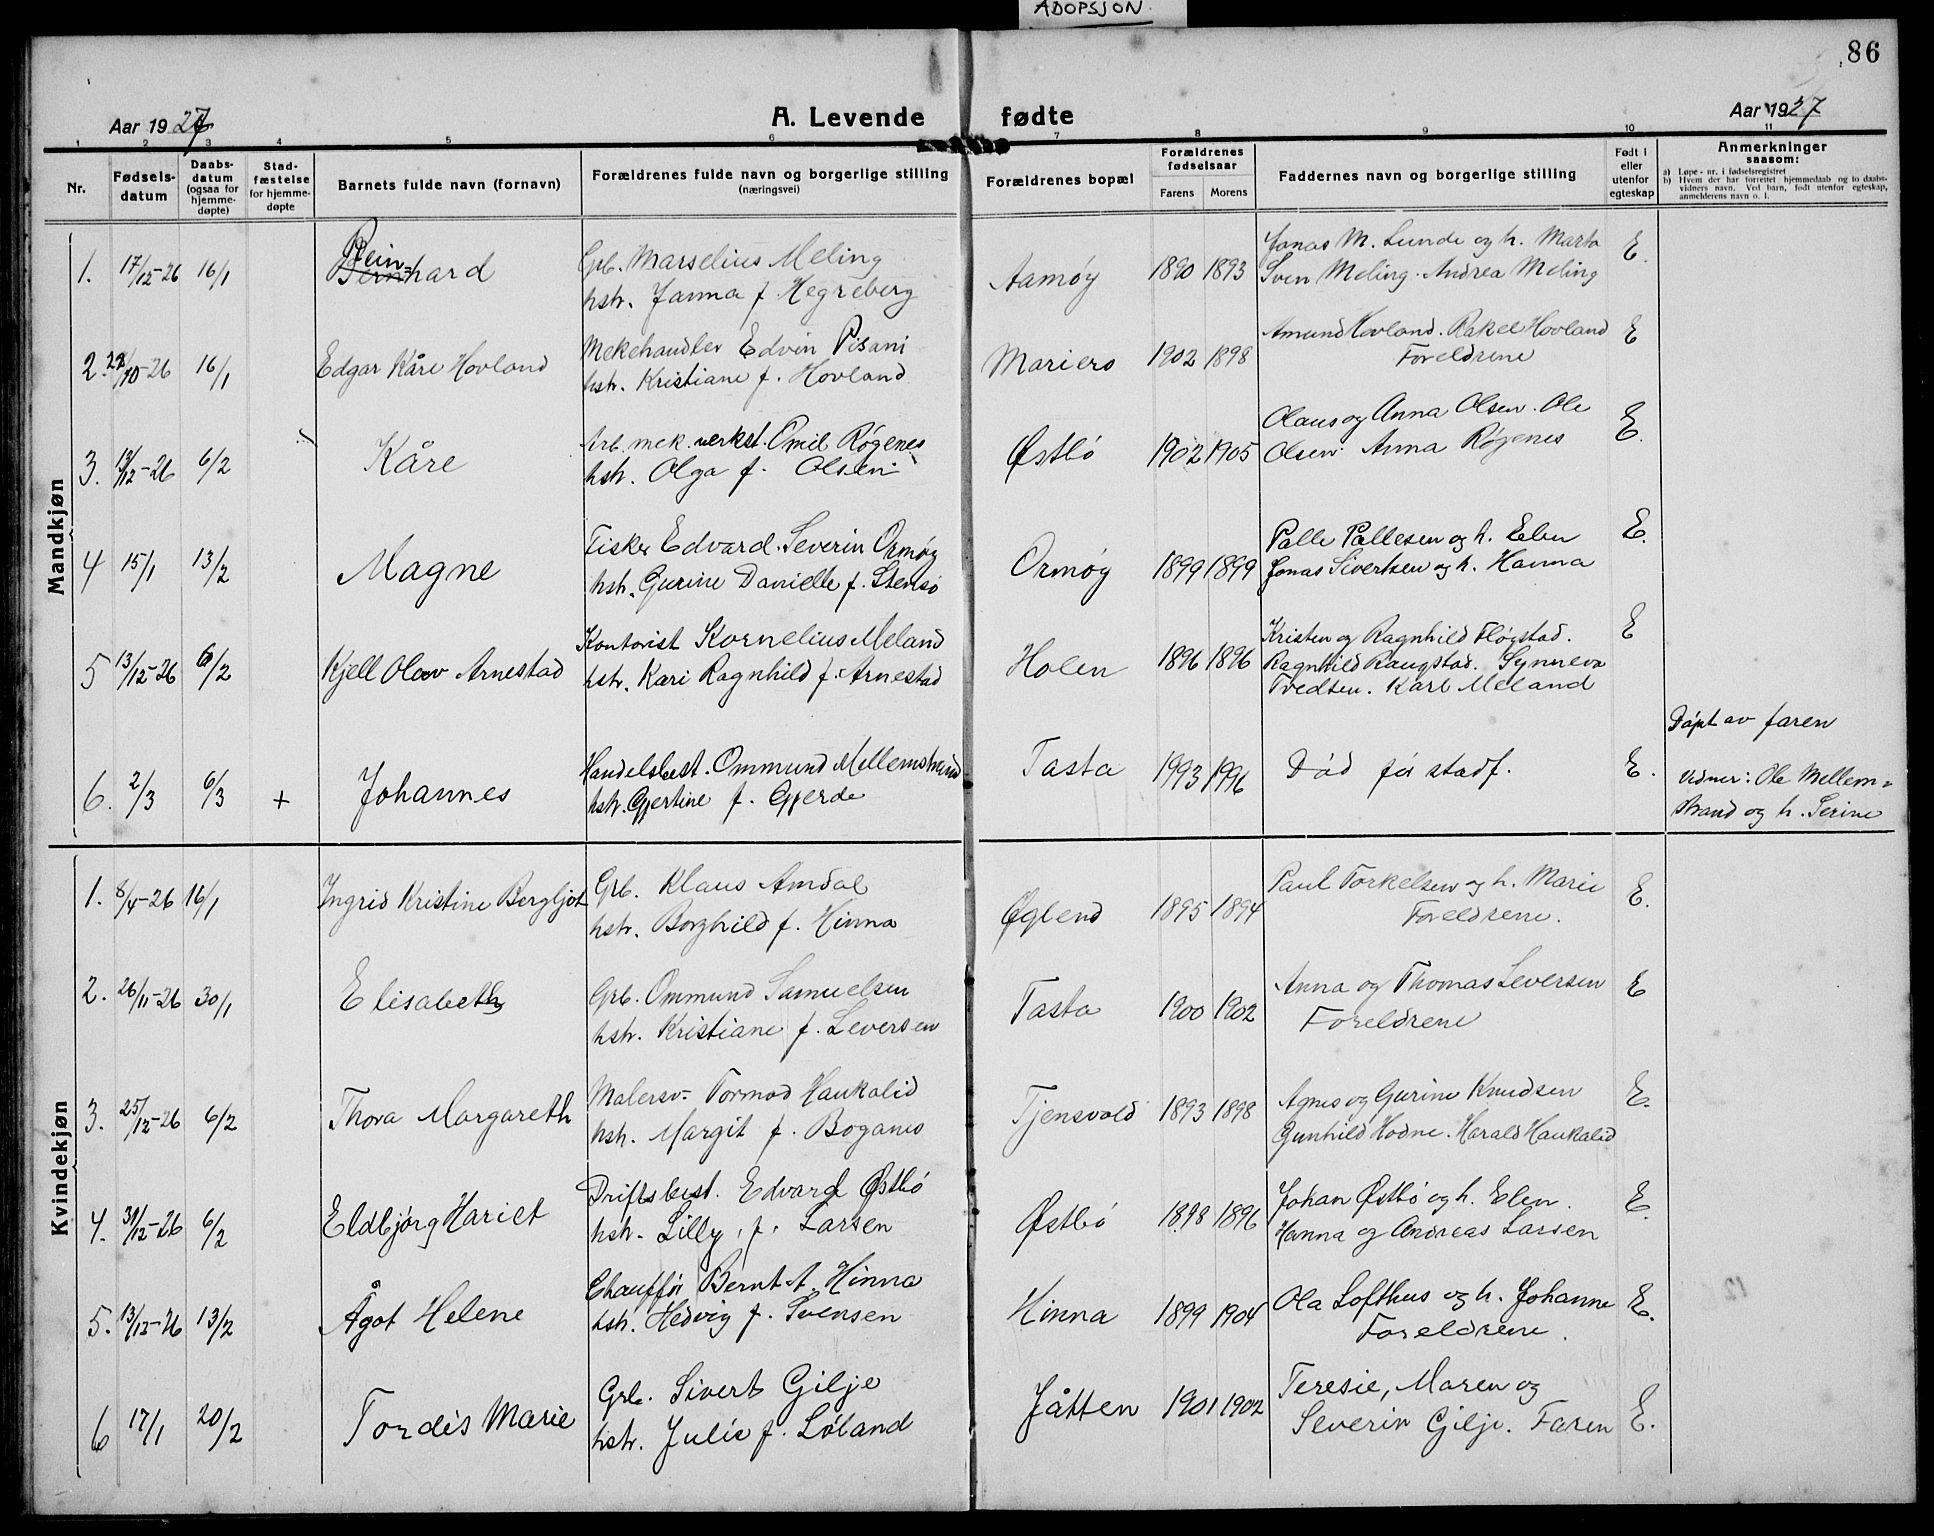 ADOPSJON.
86
Aar 1927
A. Levende fødte
Aar 1927
1 2 3 4 5 6 7 8 9 10 11
Nr.
Fødsels-datum
Daabs-datum (ogsaa for hjemme-døpte)
Stad-fæstelse for hjemme-døpte
Barnets fulde navn (fornavn)
Forældrenes fulde navn og borgerlige stilling (næringsvei)
Forældrenes bopæl
Forældrenes fødselsaar
Farens Morens
Faddernes navn og borgerlige stilling
Født i eller utenfor egteskap
Anmerkninger saasom:
a) Løpe-nr. i fødselsregistret
b) Hvem der har forrettet hjemmedaab og to daabs-vidners navn. Ved barn, født utenfor egteskap, anmelderens navn o. l.
Mandkjøn
1. 17/12-26 16/1 Reinhard
Grb. Marselius Meling
hstr. Janna f Hegreberg
Aamøy 1890 1893
Jonas M. Lunde og h. Marta
Sven Meling. Andrea Meling
E.
2. 28/10-26 16/1 Edgar Kåre Hovland
Mekehandler Edvin Pisani
hstr. Kristiane f. Hovland
Mariero 1902 1898
Amund Hovland. Rakel Hovland
Foreldrene
E
3. 13/12-26 6/2 Kåre
Arb. mek. verkst. Omil Røgenes
hstr. Olga f. Olsen
Østbø 1902 1905
Olaus og Anna Olsen. Ole
Olsen. Anna Røgenes
E.
4 15/1 13/2 Magne
Fisker Edvard Severin Ormøy
hstr. Gurine Danielle f. Stensø
Ormøy 1899 1899
Palle Pallesen og h. Elen
Jonas Sivertsen og h. Hanna
E.
5 13/12-26 6/2 Kjell Olav Arnestad
Kontorist Kornelius Meland
hstr. Kari Ragnhild f. Arnestad
Holen 1896 1896
Kristen og Ragnhild Fløgstad.
Ragnhild Raugstad. Synneva
Tvedten. Karl Meland
E
6. 2/3 6/3 + Johannes
Handelsbest. Ommund Mellemstrand
hstr. Gjertine f. Gjerde
Tasta 1993 1996
Død før stadf.
E.
Døpt av faren
Vidner: Ole Mellem=
strand og h. Serine
Kvindekjøn
1. 8/4-26 16/1 Ingrid Kristine Bergljot
Grb. Klaus Amdal
hstr. Borghild f. Hinna
Øglend 1895 1894
Paul Torkelsen og h. Marie
Foreldrene.
E.
2. 26/11-26 30/1 Elisabeth
Grb. Ommund Samuelsen
hstr. Kristiane f. Seversen
Tasta 1900 1902
Anna og Thomas Seversen
Foreldrene
E
3. 25/12-26 6/2 Thora Margareth
Malersv- Tormod Haukalid
hstr. Margit f. Boganes
Tjensvold 1893 1898
Agnes og Gurine Knudsen
Gunhild Hodne. Harald Haukalid
E.
4. 31/12-26 6/2 Eldbjørg Hariet
Driftsbest. Edvard Østbø
hstr. Lilly, f. Larsen
Østbø 1898 1896
Johan Østbø og h. Elen.
Hanna og Andreas Larsen
E.
5. 13/12-26 13/2 Ågot Helene
Chauffør Bernt A. Hinna
hstr. Hedvig f. Svensen
Hinna 1899 1904
Ola Lofthus og h. Johanne
Foreldrene.
E.
6 17/1 20/2 Tordis Marie
Grb. Sivert Gilje
hstr. Julie f. Løland
Jåtten 1901 1902
Teresie, Maren og
Severin Gilje. Faren
E.